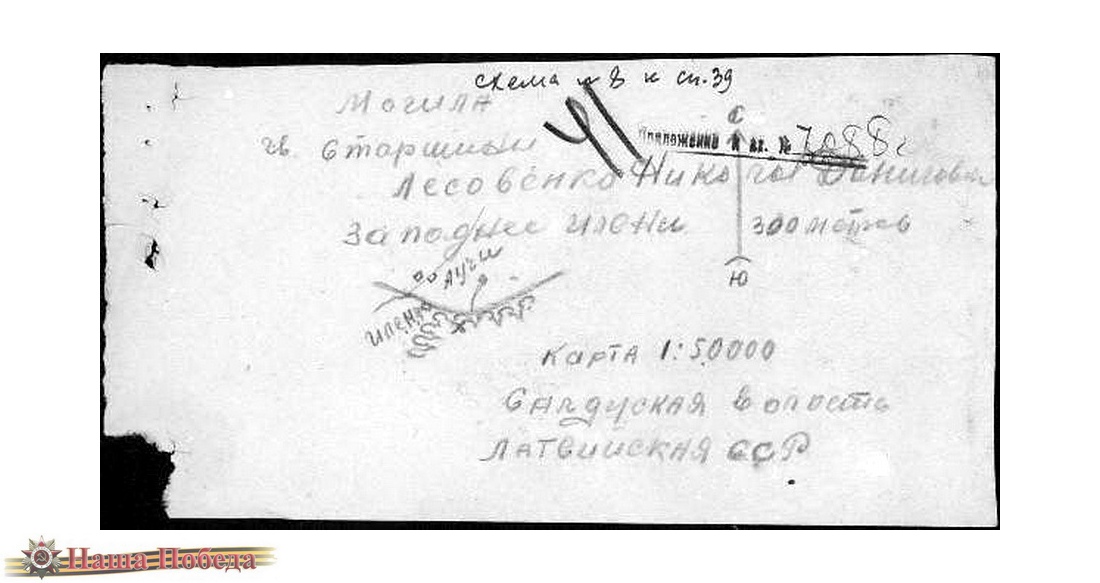 схема № 8 к сп. 39
Могила
41
С
Приложение к вх. № 7088 г
гв. Старшины
Лесовенко Николая Даниловича
Западнее Илени 300 метров
Ю
Аучи
Илени
Карта 1:50000
Салдуская волость
Латвийская ССР
Наша Победа